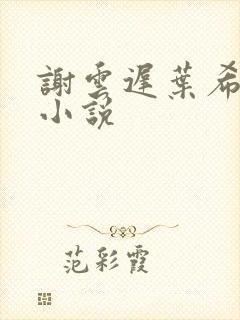 謝雲遲葉希
小說
范彩霞